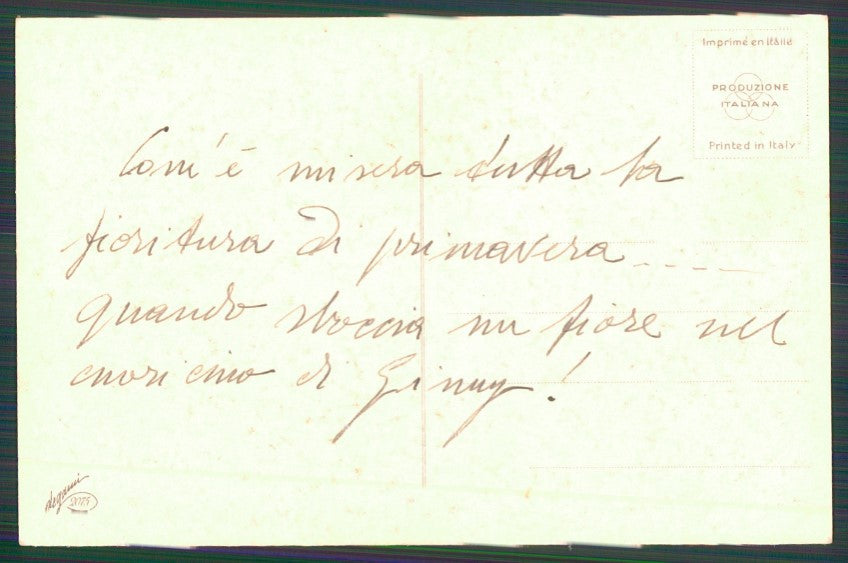 Imprimé en Italie
PRODUZIONE
ITALIANA
Printed in Italy
Com'è misera tutta la
fioritura di primavera ____
quando sboccia un fiore nel
cuoricino di Ginny!
Degami
2075